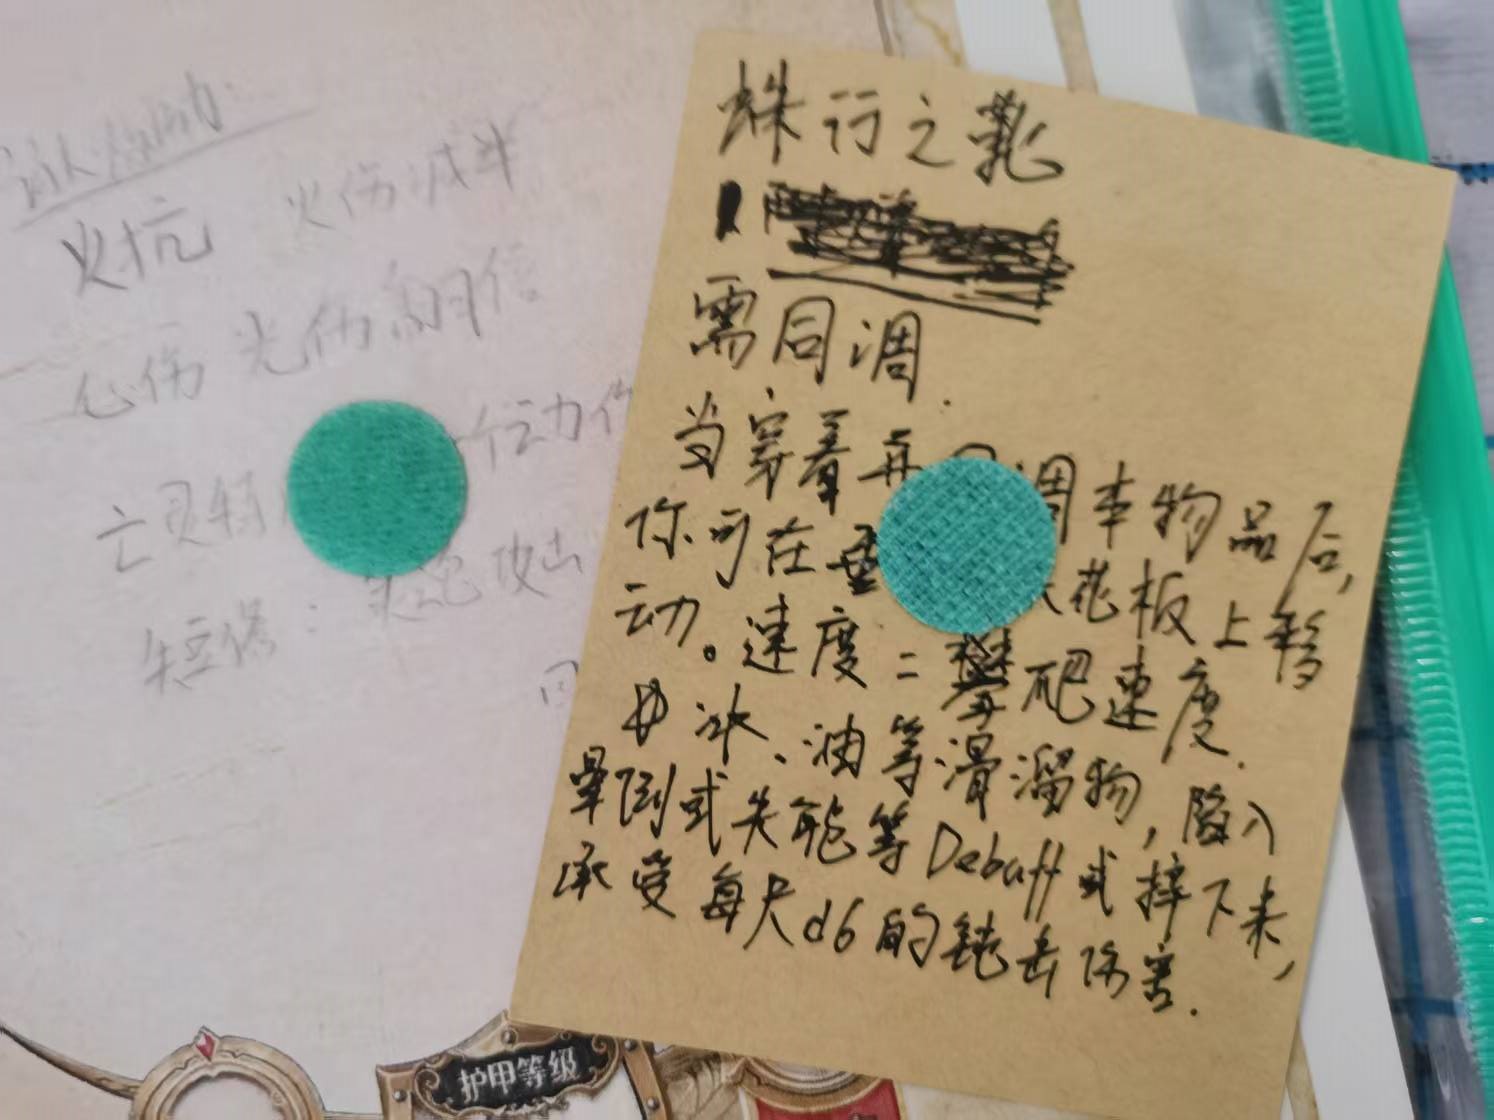 火抗 火伤减半
心伤 光伤翻倍
亡灵特
攻击
护甲等级
蛛行之靴
需同调.
当穿着并 调本物品后,
你可在垂 花板上移
动。速度=攀爬速度.
冰、油等滑溜物,陷入
晕倒或失能等Debuff或摔下来,
承受每尺d6的钝击伤害.